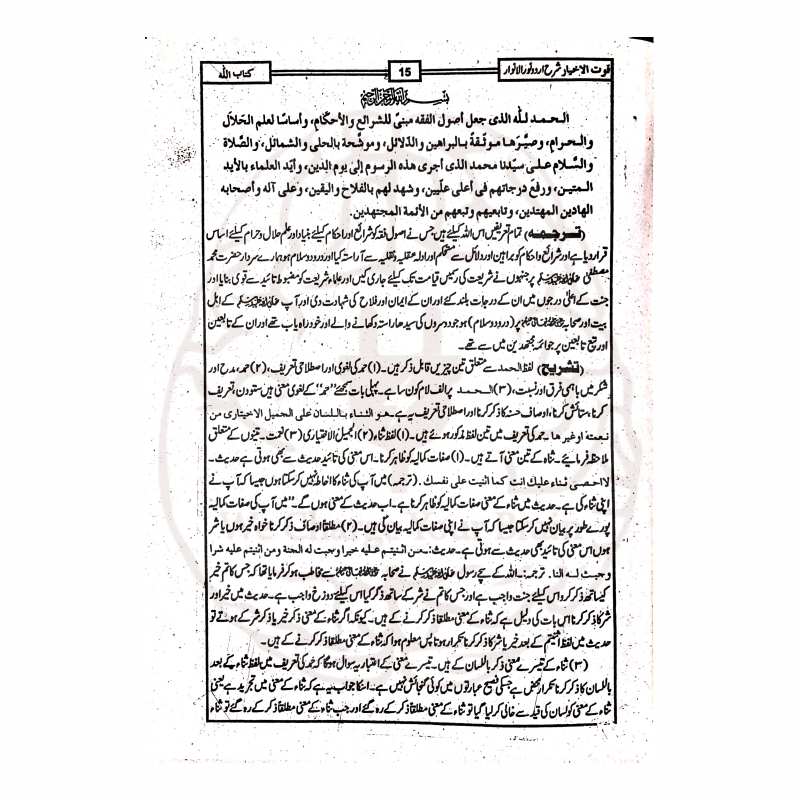 قوت الاخیار شرح اردو نور الانوار
15
کتاب اللہ
بسم اللہ الرحمن الرحیم
الحمد للہ الذی جعل أصول الفقه مبنیً للشرائع والأحکام، وأساسا لعلم الحلال
والحرام، وصیّرھا موثّقةً بالبراھین والدّلائل، وموشّحة بالحلی والشمائل، والصّلاة
والسّلام علی سیّدنا محمد الذی أجری ھذہ الرسوم إلی یوم الدین، وأیّد العلماء بالأید
المتین، ورفع درجاتھم فی أعلی علّیین، وشھد لھم بالفلاح والیقین، وعلی آله وأصحابه
الھادین المھتدین، وتابعیھم وتبعھم من الأئمة المجتھدین.
(ترجمہ) تمام تعریفیں اس اللہ کیلئے ہیں جس نے اصول فقہ کو شرائع اور احکام کیلئے بنیاد اور علم حلال وحرام کیلئے اساس
قرار دیا ہے اور شرائع واحکام کو براہین ودلائل سے مستحکم اور ادلہ عقلیہ ونقلیہ سے آراستہ کیا اور درود وسلام ہو ہمارے سردار حضرت محمد
مصطفی صلی اللہ علیہ وسلم پر جنہوں نے شریعت کی رسمیں قیامت تک کیلئے جاری کیں اور علماء شریعت کو مضبوط تائید سے قوی بنایا اور
جنت کے اعلیٰ درجوں میں ان کے درجات بلند کئے اور ان کے ایمان اور فلاح کی شہادت دی اور آپ صلی اللہ علیہ وسلم کے اہل
بیت اور صحابہ پر (درود وسلام) ہو جو دوسروں کی سیدھا راستہ دکھانے والے اور خود راہ یاب تھے اور ان کے تابعین
اور تبع تابعین پر جو ائمہ مجتہدین میں سے تھے۔
(تشریح) لفظ الحمد سے متعلق تین چیزیں قابل ذکر ہیں۔ (۱) حمد کی لغوی اور اصطلاحی تعریف، (۲) حمد، مدح اور
شکر میں باہمی فرق اور نسبت، (۳) الحمد پر الف لام کون سا ہے۔ پہلی بات سمجھئے "حمد" کے لغوی معنی ہیں ستودن، تعریف
کرنا، ستائش کرنا، اوصاف حسنہ کا ذکر کرنا اور اصطلاحی تعریف یہ ہے۔ هو الثناء باللسان علی الجمیل الاختیاری من
نعمة او غیرها۔ حمد کی تعریف میں تین لفظ مذکور ہوئے ہیں۔ (۱) لفظ ثناء (۲) الجمیل الاختیاری (۳) نعمت۔ تینوں کے متعلق
ملاحظہ فرمائیے۔ ثناء کے تین معنی آتے ہیں۔ (۱) صفات کمالیہ کو ظاہر کرنا۔ اس معنی کی تائید حدیث سے بھی ہوتی ہے حدیث۔
لا احصی ثناء علیك انت کما اثنیت علی نفسك۔ (ترجمہ) میں آپ کی ثناء کا احاطہ نہیں کر سکتا ہوں جیسا کہ آپ نے
اپنی ثناء کی ہے۔ حدیث میں ثناء کے معنی صفات کمالیہ کو ظاہر کرنا ہے۔ اب حدیث کے معنی ہوں گے۔ "میں آپ کی صفات کمالیہ
پورے طور پر بیان نہیں کر سکتا جیسا کہ آپ نے اپنی صفات کمالیہ بیان کی ہیں۔ (۲) مطلقا اوصاف ذکر کرنا خواہ خیر ہوں یا شر
ہوں اس معنی کی تائید بھی حدیث سے ہوتی ہے۔ حدیث:۔ من اثنیتم علیه خیرا وجبت له الجنة ومن اثنیتم علیه شرا
وجبت له النا۔ ترجمہ: اللہ کے سچے رسول صلی اللہ علیہ وسلم نے صحابہ سے مخاطب ہو کر فرمایا تھا کہ جس کا تم خیر
کیساتھ ذکر کرو اس کیلئے جنت واجب ہے اور جس کا تم نے شر کے ساتھ ذکر کیا اس کیلئے دوزخ واجب ہے۔ حدیث میں خیر اور
شر کا ذکر کرنا اس بات کی دلیل ہے کہ ثناء کے معنی مطلقا ذکر کرنے کے ہیں۔ کیونکہ اگر ثناء کے معنی ذکر خیر یا ذکر شر کے ہوتے تو
حدیث میں لفظ اثنیتم کے بعد خیر یا شر کا ذکر کرنا تکرار ہوتا پس معلوم ہوا کہ ثناء کے معنی مطلقا ذکر کرنے کے ہیں۔
(۳) ثناء کے تیسرے معنی ذکر باللسان کے ہیں۔ تیسرے معنی کے اعتبار پر سوال ہوگا کہ حمد کی تعریف میں لفظ ثناء کے بعد
باللسان کا ذکر کرنا تکرار محض ہے جسکی فصیح عبارتوں میں کوئی گنجائش نہیں ہے۔ اسکا جواب یہ ہے کہ ثناء کے معنی میں تجرید ہے یعنی
ثناء کے معنی کو لسان کی قید سے خالی کر لیا گیا تو ثناء کے معنی مطلقا ذکر کے رہ گئے اور جب ثناء کے معنی مطلقا ذکر کے رہ گئے تو ثناء